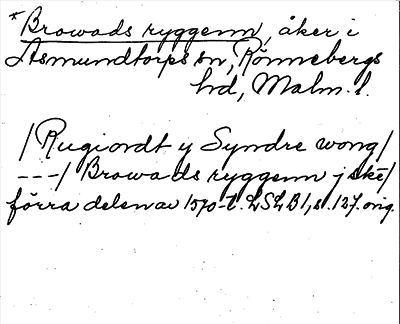 *Browads ryggenn, åker i
Asmundtorps sn, Rönnebergs
hd, Malm. l.
/ Rugiordt y Syndre wong/
---/ Browads ryggenn j skē/
förra delen av 1570-t. LSLB 1, s. 127. orig.